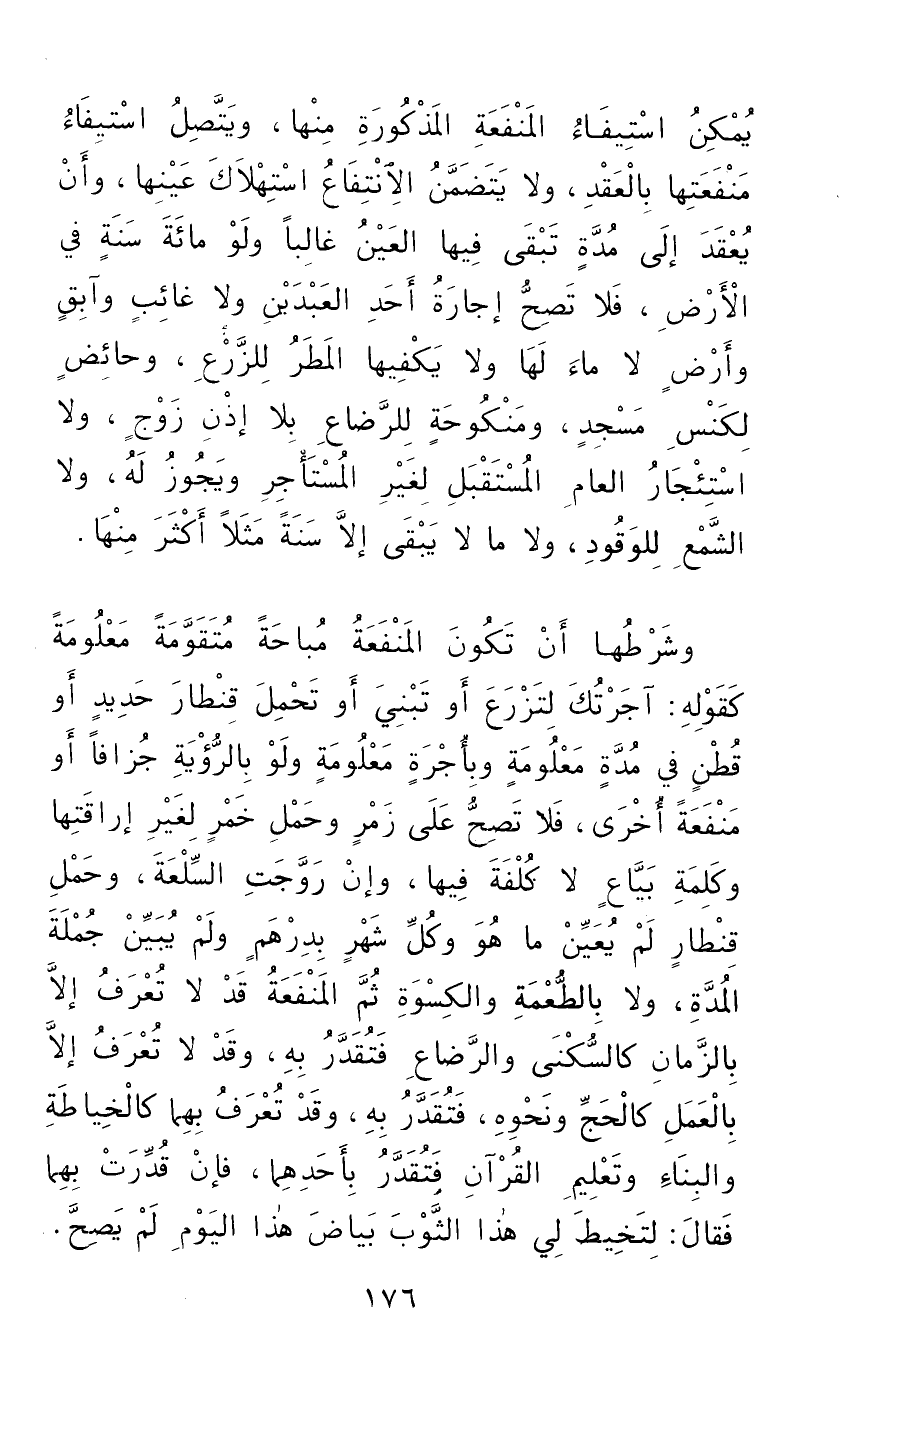 يُمْكِنُ اسْتِيفَاءُ المَنْفَعَةِ المَذْكُورَةِ مِنْها ، ويَتَّصِلُ اسْتِيفَاءُ
مَنْفَعَتِها بِالْعَقْدِ ، ولا يَتَضَمَّنُ الاِنْتِفاعُ اسْتِهْلَاكَ عَيْنِها ، وأَنْ
يُعْقَدَ إلَى مُدَّةٍ تَبْقَى فِيها العَيْنُ غالِباً ولَوْ مائَةَ سَنَةٍ في
الْأَرْضِ ، فَلا تَصِحُّ إجارَةُ أَحَدِ العَبْدَيْنِ ولا غائِبٍ وآبِقٍ
وأَرْضٍ لا ماءَ لَهَا ولا يَكْفِيها المَطَرُ لِلزَّرْعِ ، وحائِضٍ
لِكَنْسِ مَسْجِدٍ ، ومَنْكُوحَةٍ لِلرَّضاعِ بِلا إذْنِ زَوْجٍ ، ولا
اسْتِئْجَارُ العامِ المُسْتَقْبَلِ لِغَيْرِ المُسْتَأْجِرِ ويَجُوزُ لَهُ ، ولا
الشَّمْعِ لِلوَقُودِ ، ولا ما لا يَبْقَى إلاَّ سَنَةً مَثَلاً أَكْثَرَ مِنْهَا .
وشَرْطُها أَنْ تَكُونَ المَنْفَعَةُ مُباحَةً مُتَقَوَّمَةً مَعْلُومَةً
كَقَوْلِهِ : آجَرْتُكَ لِتَزْرَعَ أَو تَبْنِيَ أَو تَحْمِلَ قِنْطارَ حَدِيدٍ أَو
قُطْنٍ في مُدَّةٍ مَعْلُومَةٍ وبِأُجْرَةٍ مَعْلُومَةٍ ولَوْ بِالرُّؤْيَةِ جُزافاً أَو
مَنْفَعَةً أُخْرَى ، فَلا تَصِحُّ عَلَى زَمْرٍ وحَمْلِ خَمْرٍ لِغَيْرِ إراقَتِها
وكَلِمَةِ بَيَّاعٍ لا كُلْفَةَ فِيها ، وإنْ رَوَّجَتِ السِّلْعَةَ ، وحَمْلِ
قِنْطارٍ لَمْ يُعَيِّنْ ما هُوَ وكُلِّ شَهْرٍ بِدِرْهَمٍ ولَمْ يُبَيِّنْ جُمْلَةَ
المُدَّةِ ، ولا بِالطُّعْمَةِ والكِسْوَةِ ثُمَّ المَنْفَعَةُ قَدْ لا تُعْرَفُ إلاَّ
بِالزَّمانِ كالسُّكْنَى والرَّضاعِ فَتُقَدَّرُ بِهِ ، وقَدْ لا تُعْرَفُ إلاَّ
بِالْعَمَلِ كالْحَجِّ ونَحْوِهِ ، فَتُقَدَّرُ بِهِ ، وقَدْ تُعْرَفُ بِهِما كالْخِياطَةِ
والبِنَاءِ وتَعْلِيمِ القُرْآنِ فَتُقَدَّرُ بِأَحَدِهِما ، فإنْ قُدِّرَتْ بِهِما
فَقالَ : لِتَخِيطَ لِي هٰذا الثَّوْبَ بَياضَ هٰذا اليَوْمِ لَمْ يَصِحَّ .
١٧٦